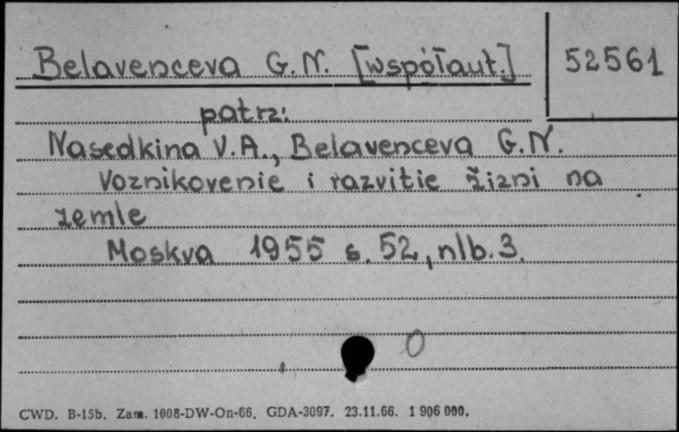 Belavenceva G.N. [współaut.]
52561
patrz:
Nasedkina V.A., Belavenceva G.N.
Voznikovenie i razvitie žizni na
zemle
Moskva 1955 s. 52, nlb. 3.
0
CWD. B-15b. Zam. 1008-DW-On-66. GDA-3097. 23.11.66. 1 906 000.